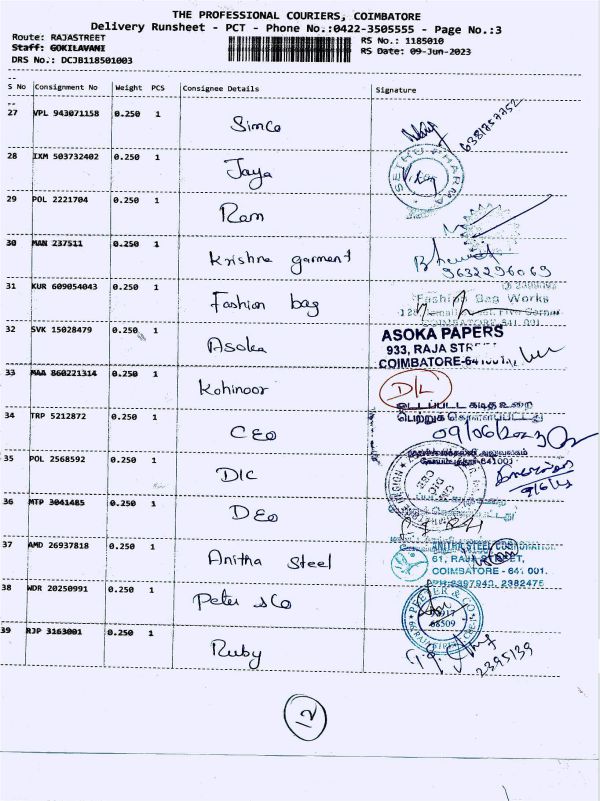 THE PROFESSIONAL COURIERS, COIMBATORE
Delivery Runsheet - PCT - Phone No.:0422-3505555 - Page No.:3
Route: RAJASTREET RS No.: 1185010
Staff: GOKILAVANI RS Date: 09-Jun-2023
DRS No.: DCJB118501003
S No Consignment No Weight PCS Consignee Details Signature
27 VPL 943071158 0.250 1 Simco
28 IXM 503732402 0.250 1 Jaya
SETHU PHARMA
29 POL 2221704 0.250 1 Ram
30 MAN 237511 0.250 1 Krishna garment
9632296069
31 KUR 609054043 0.250 1 Fashion bag
Fashion Bag Works
COIMBATORE 641 001.
32 SVK 15028479 0.250 1 Asoka
ASOKA PAPERS
933, RAJA STREET
COIMBATORE-641001
33 MAA 860221314 0.250 1 Kohinoor D/L
34 TRP 5212872 0.250 1 CEO
பெற்றுக்
09/06/2023
35 POL 2568592 0.250 1 DIC
9/6/23
36 MTP 3041485 0.250 1 DEO
37 AMD 26937818 0.250 1 Anitha Steel
ANITHA STEEL CORPORATION
61, RAJA STREET,
COIMBATORE - 641 001.
PH:2397940, 2382476
38 WDR 20250991 0.250 1 Peter & Co
PETER & CO
39 RJP 3163001 0.250 1 Ruby
2395139
12